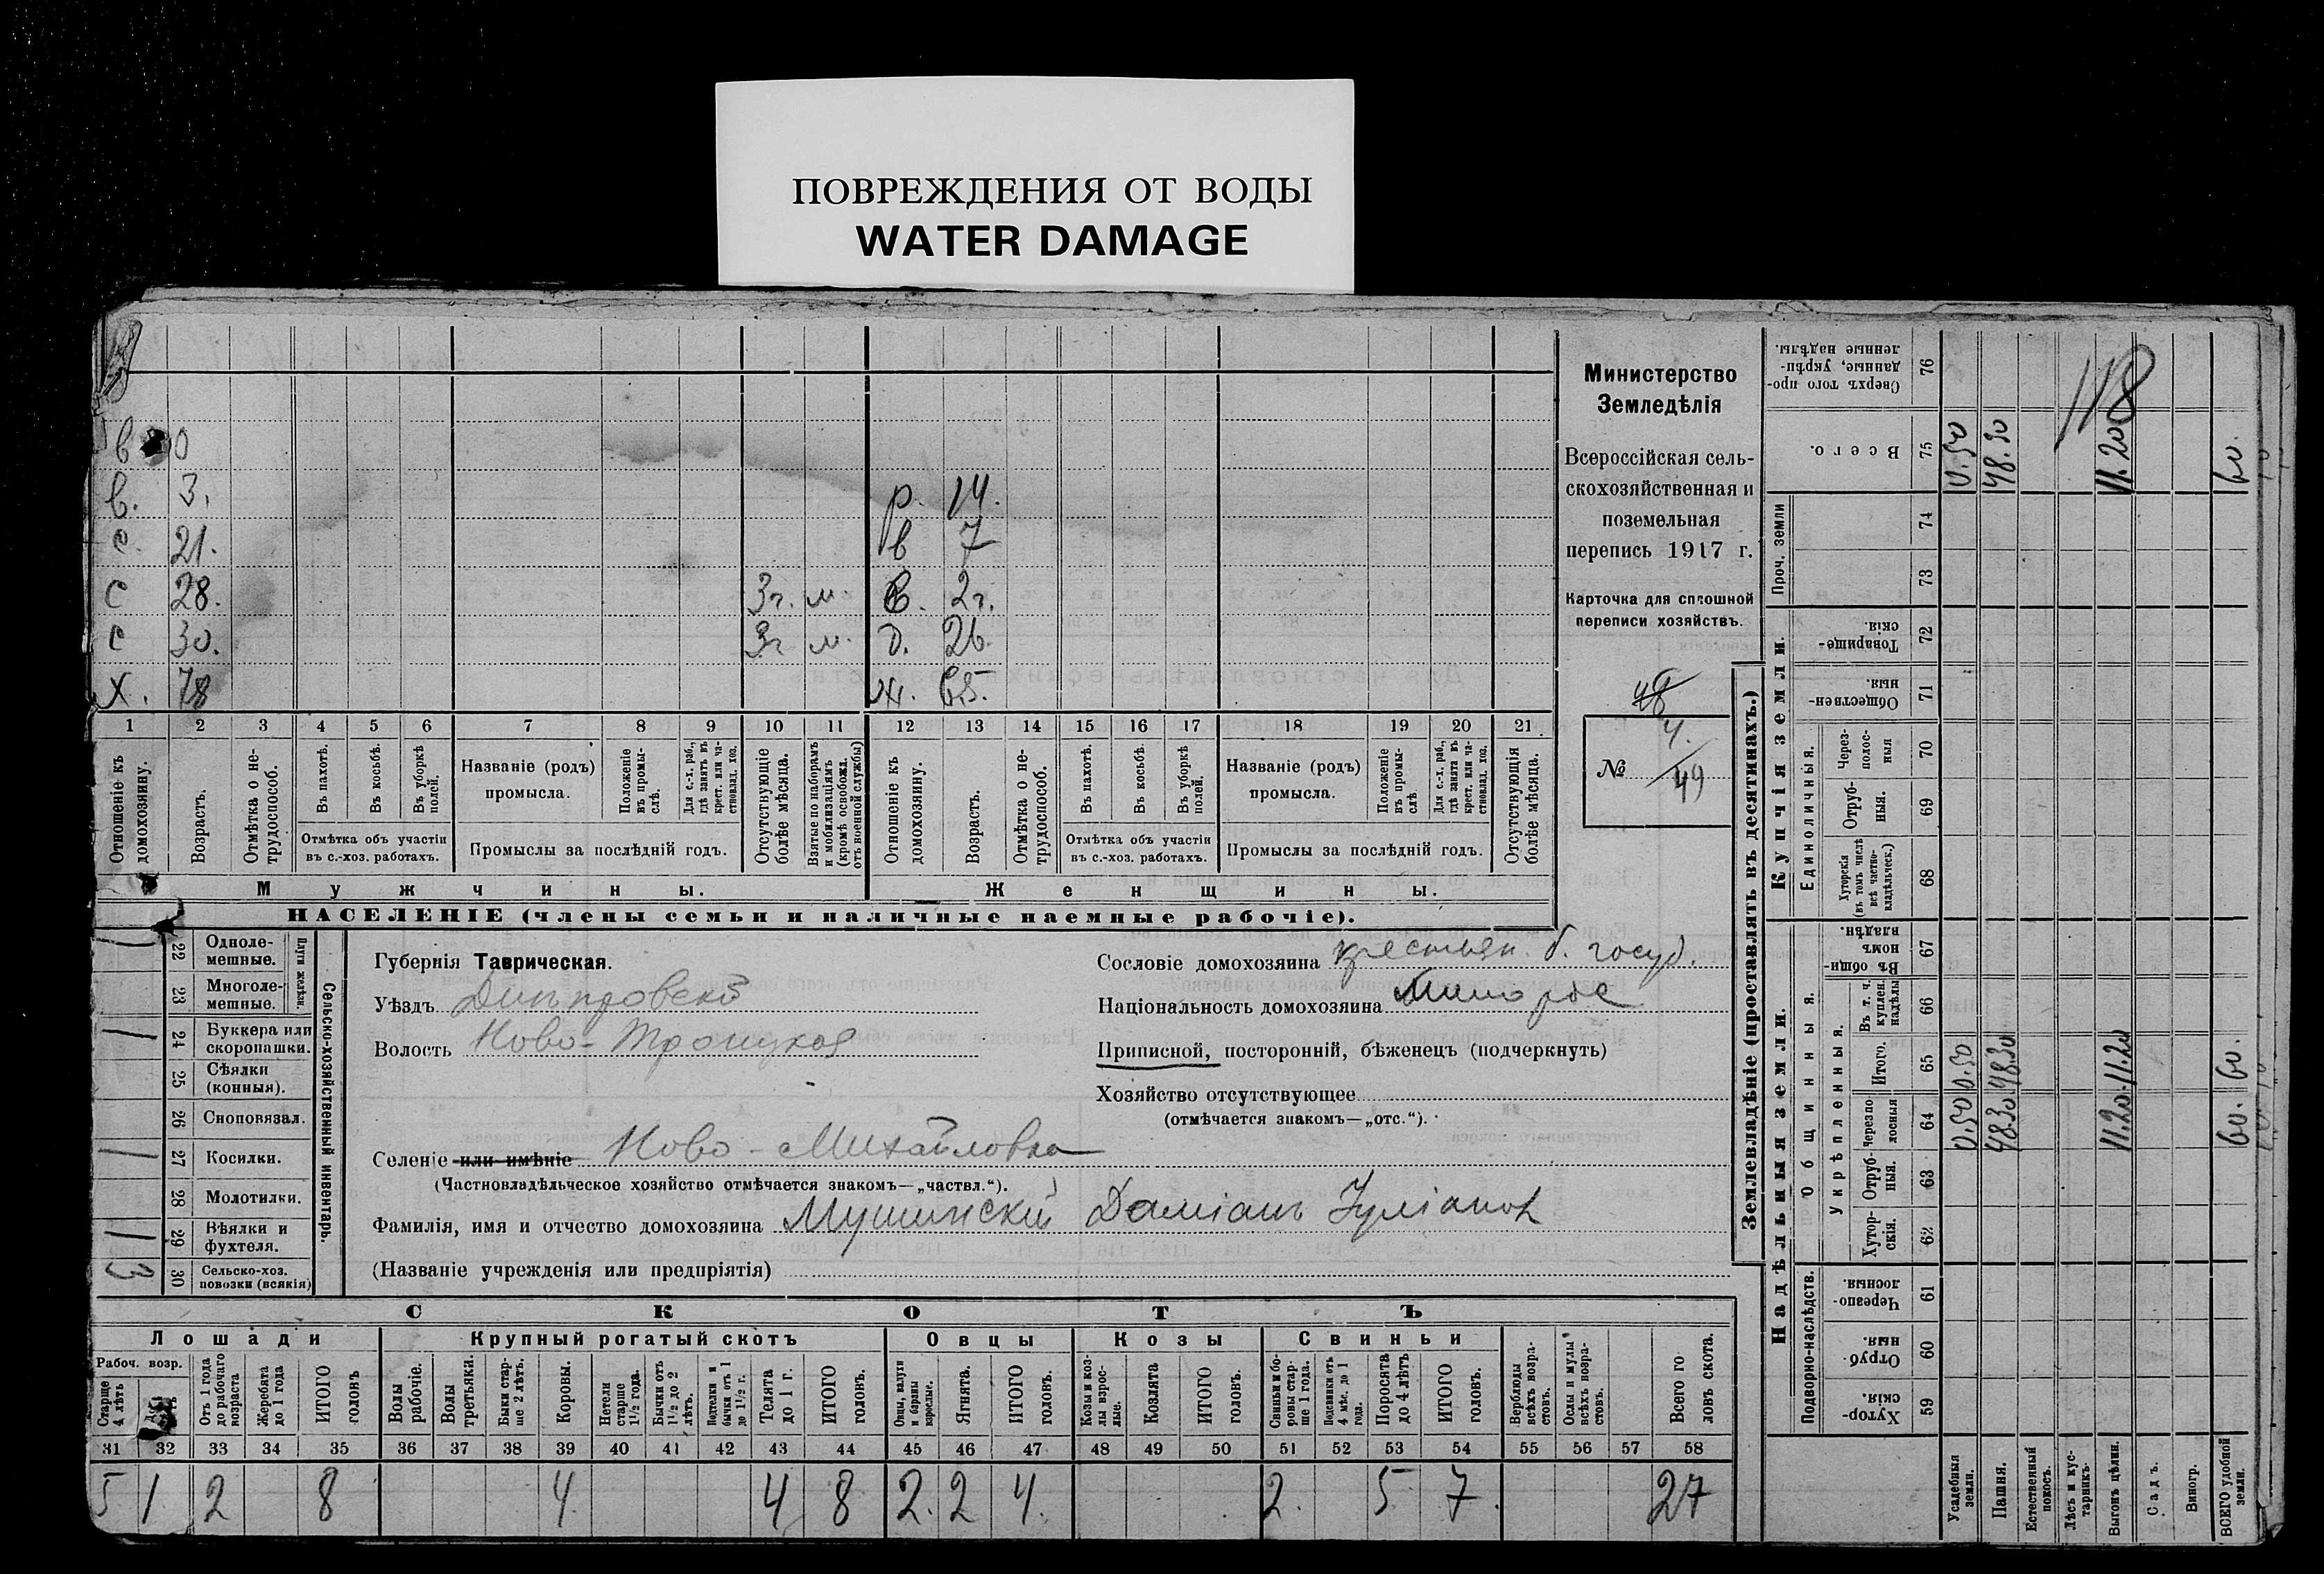 ПОВРЕЖДЕНИЯ ОТ ВОДЫ
WATER DAMAGE
в 0
в. 3. р. 14.
с. 21. в 7
с 28. 3г. м. в. 2г.
с 30. 3г м. д. 26.
х. 78 ж. 65.
1 2 3 4 5 6 7 8 9 10 11 12 13 14 15 16 17 18 19 20 21
Отношеніе къ домохозяину.
Возрастъ.
Отмѣтка о нетрудоспособ.
Въ пахотѣ.
Въ косьбѣ.
Въ уборкѣ полей.
Отмѣтка объ участіи въ с.-хоз. работахъ.
Названіе (родъ) промысла.
Положеніе въ промыслѣ.
Для с.-х. раб., гдѣ занятъ въ крест. или частновлад. хоз.
Промыслы за послѣдній годъ.
Отсутствующіе болѣе мѣсяца.
Взятые по наборамъ и мобилизаціямъ (кромѣ освобожд. отъ военной службы)
Отношеніе къ домохозяину.
Возрастъ.
Отмѣтка о нетрудоспособ.
Въ пахотѣ.
Въ косьбѣ.
Въ уборкѣ полей.
Отмѣтка объ участіи въ с.-хоз. работахъ.
Названіе (родъ) промысла.
Положеніе въ промыслѣ
Для с.-х. раб., гдѣ занята въ крест. или частновлад. хоз.
Промыслы за послѣдній годъ.
Отсутствующія болѣе мѣсяца.
Мужчины.
Женщины.
НАСЕЛЕНІЕ (члены семьи и наличные наемные рабочіе).
Министерство
Земледѣлія
Всероссійская сель-
скохозяйственная и
поземельная
перепись 1917 г.
Карточка для сплошной
переписи хозяйствъ.
48
№ 4/49
Сельско-хозяйственный инвентарь.
Плуги желѣзн.
22 Одноле-
мешные. 1
23 Многоле-
мешные.
24 Буккера или
скоропашки. 1
25 Сѣялки
(конныя).
26 Сноповязал.
27 Косилки. 1
28 Молотилки.
29 Вѣялки и
фухтеля. 1
30 Сельско-хоз.
повозки (всякія) 3
Губернія Таврическая.
Уѣздъ Днѣпровскій
Волость Ново-Троицкая
Селеніе или имѣніе Ново-Михайловка
(Частновладѣльческое хозяйство отмѣчается знакомъ—„частвл.“).
Фамилія, имя и отчество домохозяина Мушинскій Даміанъ Іуліанов
(Названіе учрежденія или предпріятія)
Сословіе домохозяина крестьян. б. госуд.
Національность домохозяина Малорос
Приписной, посторонній, бѣженецъ (подчеркнуть)
Хозяйство отсутствующее
(отмѣчается знакомъ—„отс.“).
СКОТЪ
Лошади
Крупный рогатый скотъ
Овцы
Козы
Свиньи
Рабоч. возр.
Старше 4 лѣтъ
Отъ 1 года до рабочаго возраста
Жеребята до 1 года
ИТОГО головъ
Волы рабочіе.
Волы третьяки.
Быки старше 2 лѣтъ.
Коровы.
Нетели старше 1½ года.
Бычки отъ 1½ до 2 лѣтъ.
Подтелки и бычки отъ 1 до 1½ г.
Телята до 1 г.
ИТОГО головъ.
Овцы, валухи и бараны взрослые.
Ягнята.
ИТОГО головъ.
Козы и козлы взрослые.
Козлята
ИТОГО головъ.
Свиньи и боровы старше 1 года.
Подсвинки отъ 4 мѣс. до 1 года.
Поросята до 4 лѣтъ
ИТОГО головъ.
Верблюды всѣхъ возрастовъ.
Ослы и мулы всѣхъ возрастовъ.
Всего головъ скота.
31 32 33 34 35 36 37 38 39 40 41 42 43 44 45 46 47 48 49 50 51 52 53 54 55 56 57 58
5 1 2 8 4 4 8 2. 2 4. 2. 5 7. 27
Землевладѣніе (проставлять въ десятинахъ.)
Надѣльныя земли.
Купчія земли.
Проч. земли
Подворно-наслѣдств.
Общинныя.
Укрѣпленныя.
Единоличныя.
76 Сверхъ того проданные, укрѣпленные надѣлы.
75 Всего. 0.50 48.30 11.20 60.
118
74
73
72 Товарищескія.
71 Общественныя.
70 Черезполосныя
69 Отрубныя.
68 Хуторскія (въ томъ числѣ всѣ частновладѣльческ.)
67 Въ общинномъ владѣн.
66 Въ т. ч. куплен. надѣлы
65 Итого. 0.50 48.30 11.20 60.
64 Черезполосныя 0.50 48.30 11.20 60.
63 Отрубныя.
62 Хуторскія.
61 Черезполосныя.
60 Отрубныя.
59 Хуторскія.
Усадебныя земли.
Пашня.
Естественный покосъ.
Лѣсъ и кустарникъ.
Выгонъ цѣлин.
Садъ.
Виногр.
ВСЕГО удобной земли.